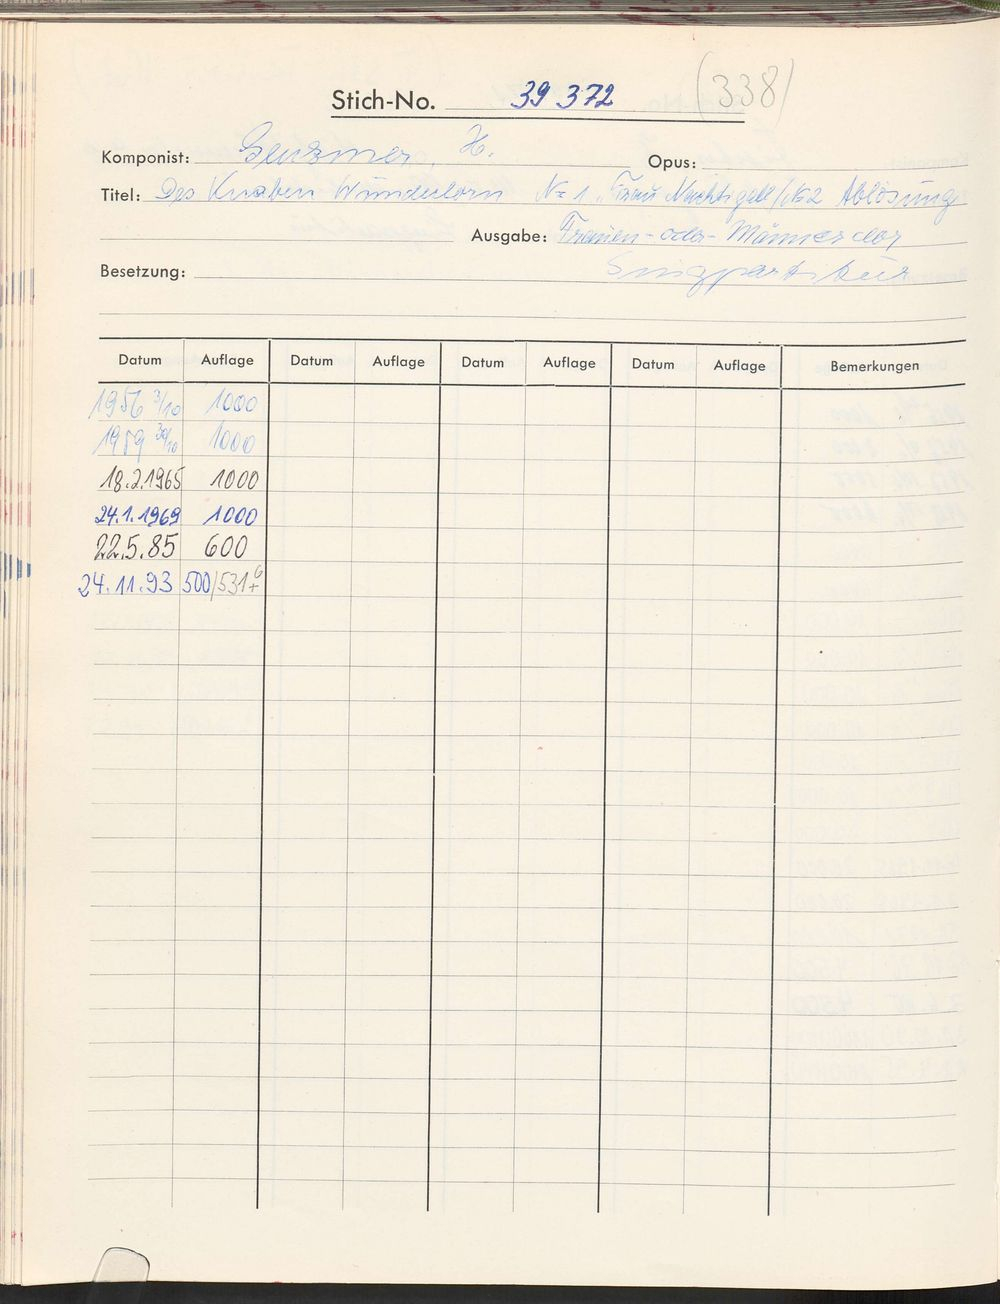 Stich-No. 39 372 (338)
Komponist: Genzmer, H. Opus:
Titel: Des Knaben Wunderhorn No 1 "Frau Nachtigall / No 2 Ablösung
Ausgabe: Frauen-oder-Männerchor
Besetzung: Singpartitur
Datum Auflage Datum Auflage Datum Auflage Datum Auflage Bemerkungen
1956 3/10 1000
1959 30/10 1000
18.2.1965 1000
24.1.1969 1000
22.5.85 600
24.11.93 500/531+6